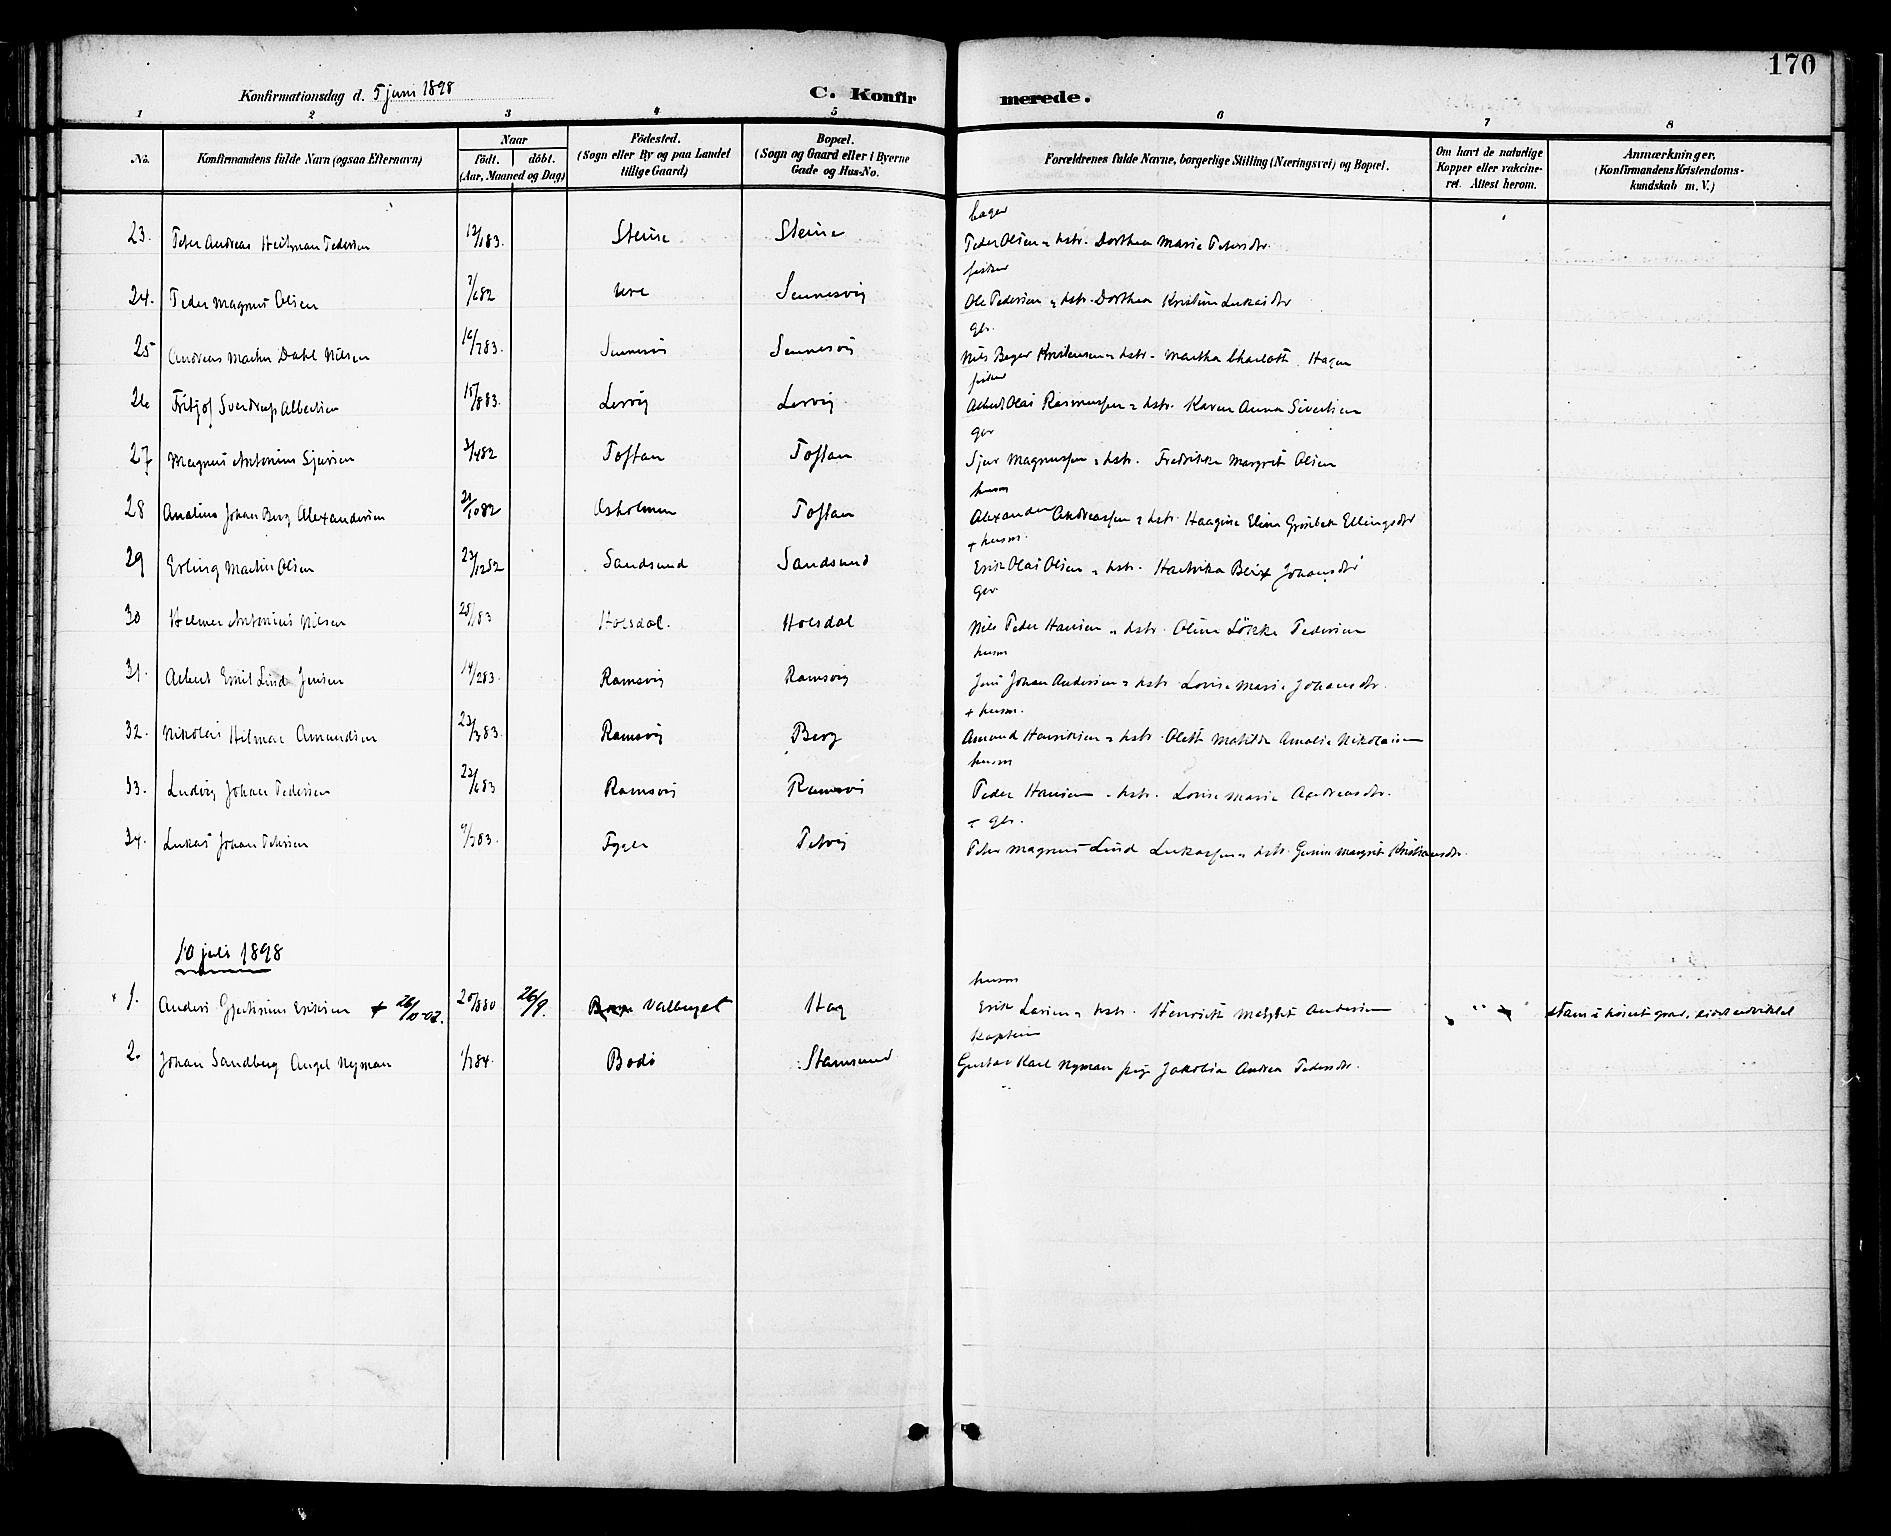 170
Konfirmationsdag d. 5 juni 1898
C. Konfirmerede.
1 2 3 4 5 6 7 8
No.
Konfirmandens fulde Navn (ogsaa Efternavn)
Naar
födt. döbt.
(Aar, Maaned og Dag)
Födested.
(Sogn eller By og paa Landet
tillige Gaard)
Bopæl.
(Sogn og Gaard eller i Byerne
Gade og Hus-No.
Forældrenes fulde Navne, borgerlige Stilling (Næringsvei) og Bopæl.
Om havt de naturlige
Kopper eller vakcine-
ret. Attest herom.
Anmærkninger.
(Konfirmandens Kristendoms-
kundskab m. V.)
bager
23. Peter Andreas Heitman Pedersen 12/1 83. Steine Steine Peder Olsen hstr. Dorthea Marie Petersdtr.
fisker
24. Peder Magnus Olsen 7/6 82 Ure Sennesvig Ole Pedersen hstr. Dorthea Kristine Lukasdtr
gbr.
25 Andreas Martin Dahl Nilsen 83. Sennesvig Sennesvig Nils Bager Kristensen hstr. Martha Charlotte Hagen
fisker
26 Fritjof Sverdrup Albertsen 15/8 83. Lervig Lervig Albert Olai Rasmussen hstr. Karen Anna Sivertsen
gbr
27 Magnus Antonius Sjursen 3/4 82 Toftan Toftan Sjur Magnussen hstr. Fredrikke Margrete Olsen
husm
28 Analius Johan Berg Alexandersen 21/10 82 Toftan Alexander Andreassen hstr. Haagine Elina Ellingsdtr
+ husm.
29 Erling Martin Olsen 23/12 82 Sandsund Sandsund Erik Olai Olsen hstr. Hartvika Johansdtr
gbr
30 Helmer Antonius Nilsen 83 Holsdal. Holsdal Nils Peder Hansen hstr. Oline Lökke Pedersen
husm
31. Albert Emil Lind Jensen 14/2 83. Ramsvig Ramsvig Jens Johan Andersen hstr. Lovise Marie Johansdtr.
+ husm.
32. Nikolai Hilmar Amundsen 23/3 83. Ramsvig Berg Amund Henriksen hstr. Olette Matilde Amalie Nikolaisen
husm
33. Ludvig Johan Pedersen 22/6 83 Ramsvig Ramsvig Peder Hansen hstr. Lovise Marie Andreasdtr.
+ gbr.
34. Lukas Johan Petersen 83. Fygle Petvig Peter Magnus Lind Lukassen hstr. Gurine Margrete Kristiansdtr.
10 juli 1898
husm
1. Anders Gjertinius Eriksen + 26/10-02. 20/8 80 26/9. Valberget Hag Erik Larsen hstr. Henriette Andersen
kaptein
2. Johan Sandberg Angel Nyman 1/1 84. Bodö Stamsund Gustav Karl Nyman pige Jakobia Andrea Pedersdtr.